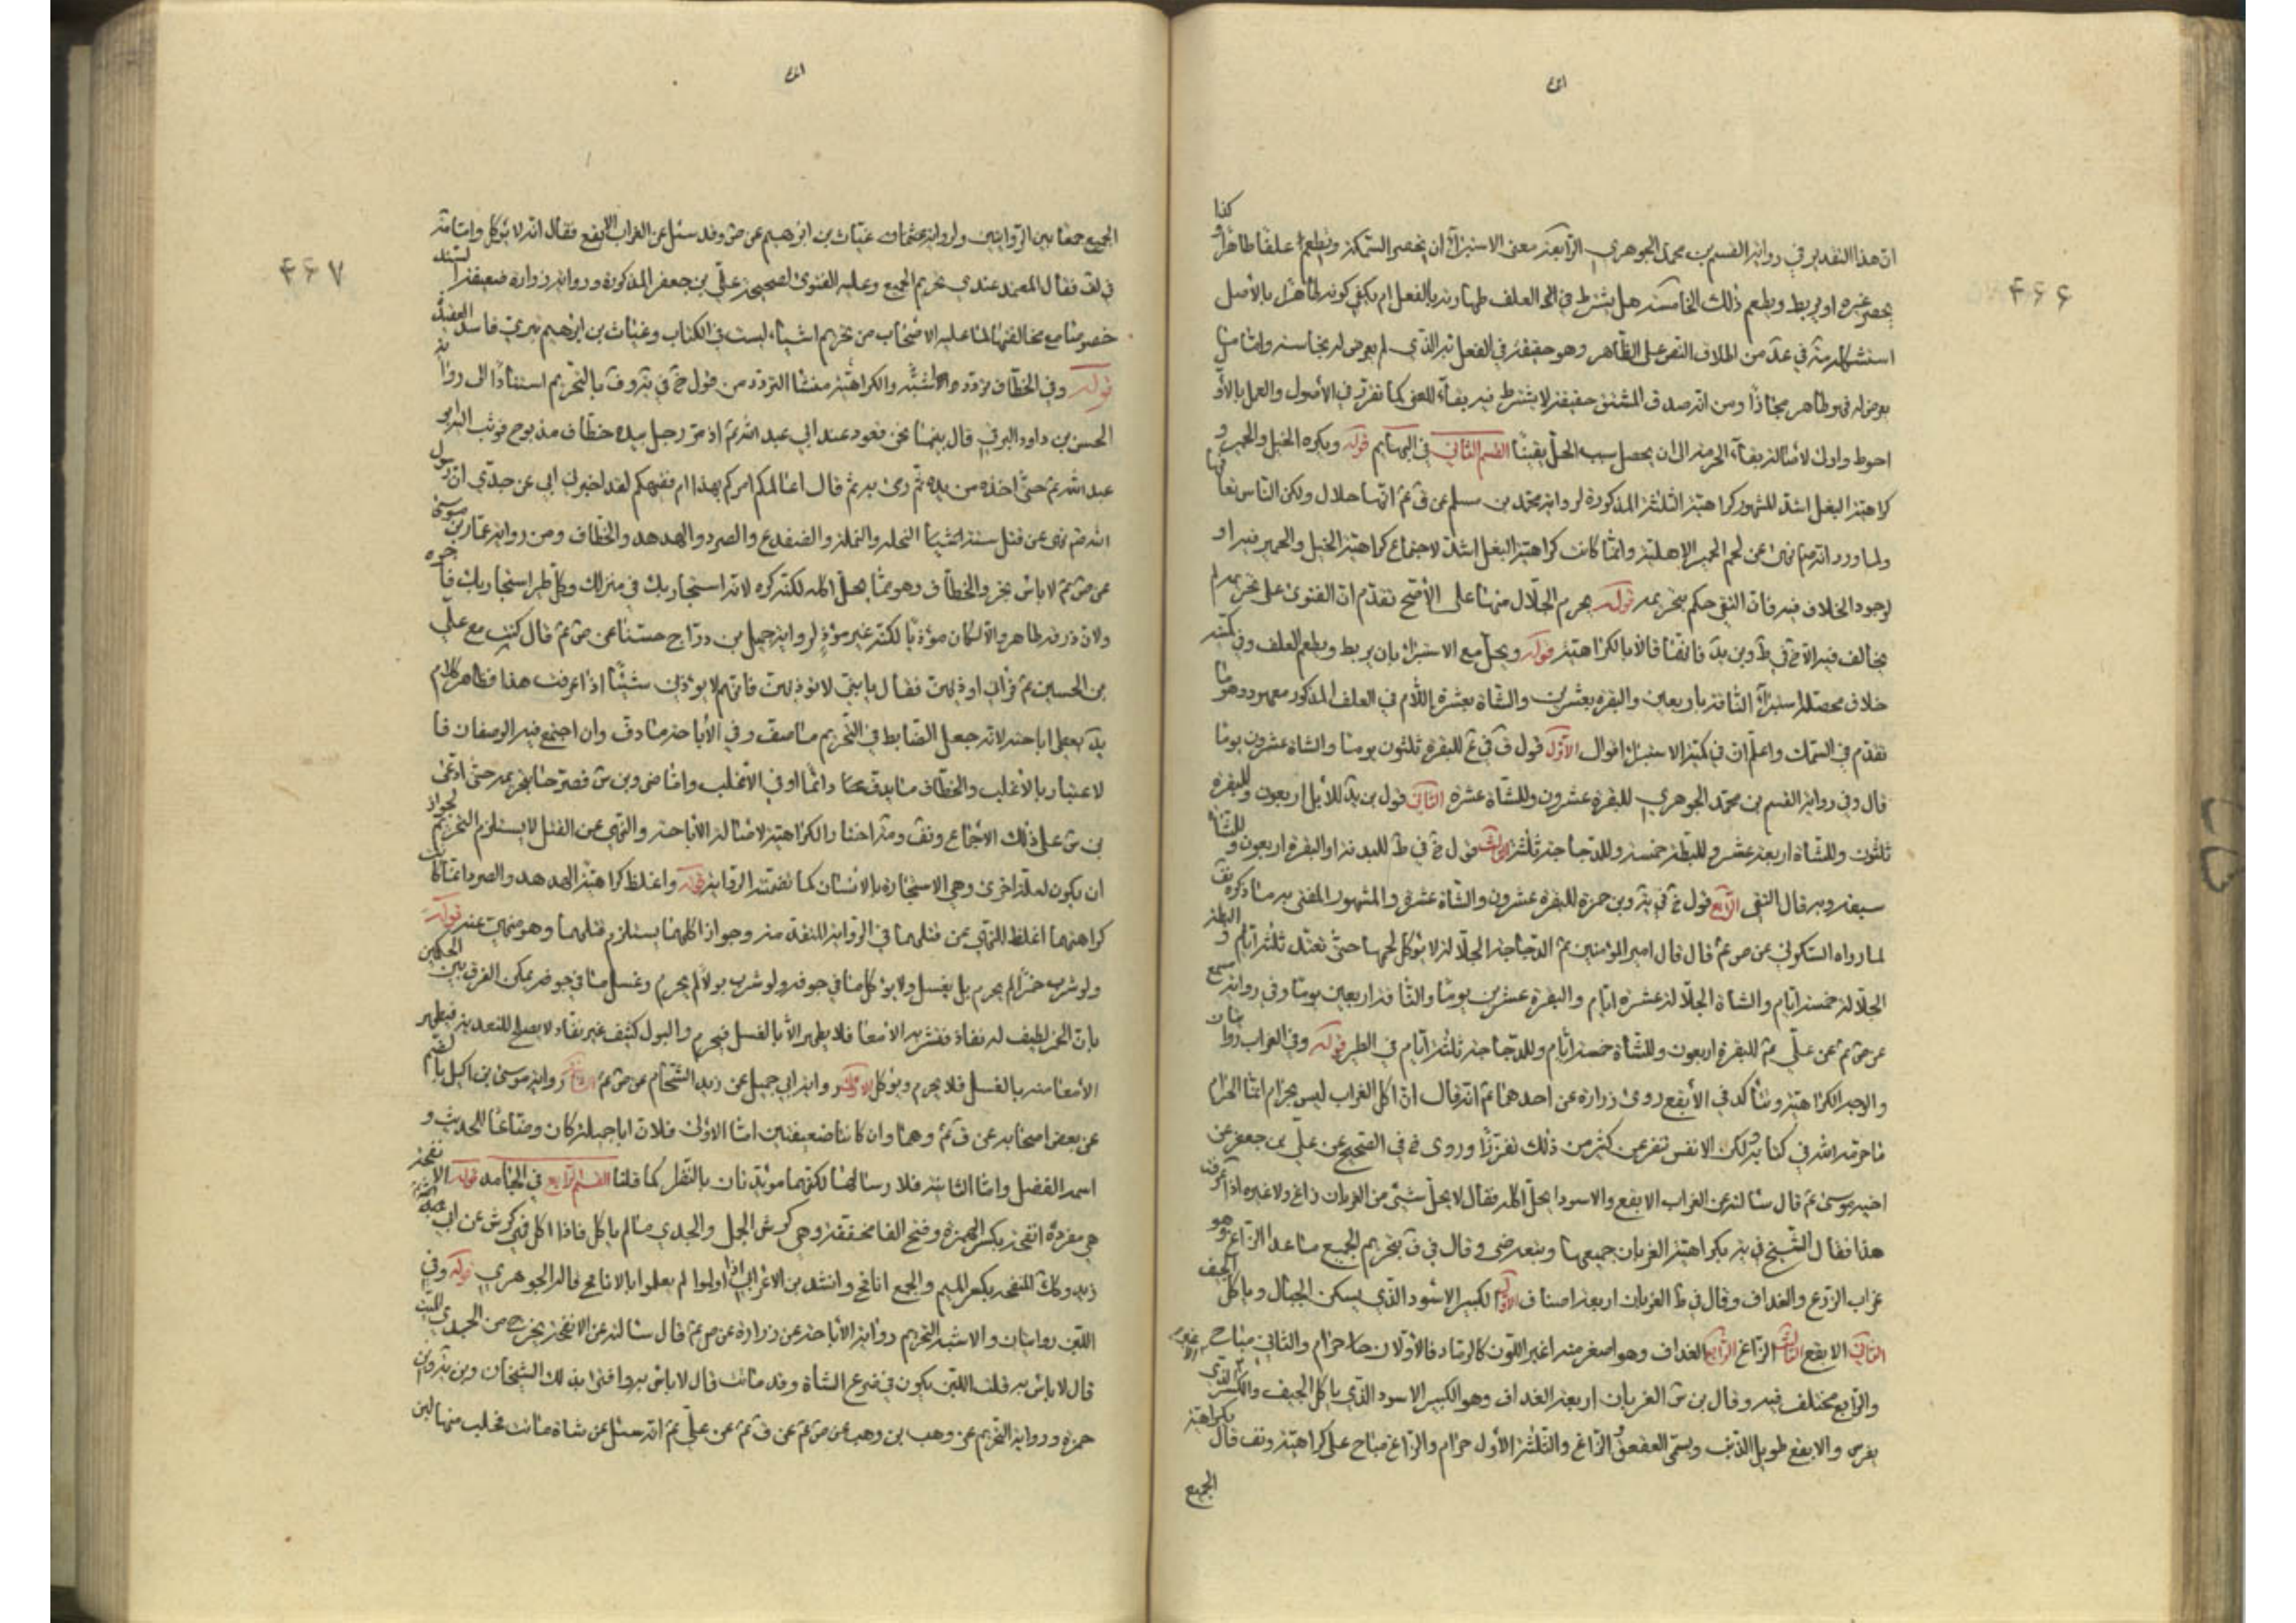 ۴۶۶
ان هذا التقدير في رواية القسم بن محمد الجوهري الرابعة معنى الاستبراء ان يحصر السمكة ويطعم علفا طاهرا و كذا
يحصر غيره او يربط ويطعم ذلك الخامسة هل يشترط في العلف طهارته بالفعل ام يكفي كونه طاهرا بالاصل
استشكله في عد من اطلاق النص على الظاهر وهو حقيقة في الفعل الذي لم يعرض له نجاسة واما ما
بعرض له فهو طاهر مجازا ومن انه صدق المشتق حقيقة لا يشترط فيه بقاء المعنى كما تقرر في الاصول والعمل بالاو
احوط واولى لاصالة بقاء الحرمة الى ان يحصل سبب الحل يقينا القسم الثاني في البهايم قوله ويكره الخيل والحمير و
كراهية البغل اشد المشهور كراهية الثلثة المذكورة لرواية محمد بن مسلم عن ق عم انها حلال ولكن الناس تعا فها
ولما ورد انه ص نهى عن لحم الحمير الاهلية وانما كانت كراهية البغل اشد لاجتماع كراهية الخيل والحمير فيه او
لوجود الخلاف فيه فان التقي حكم بتحريمه قوله يحرم الجلال منها على الاصح تقدم ان الفتوى على تحريمه لم
يخالف فيه الا خ في ط وبن بد فانهما قالا بالكراهية قوله ويحل مع الاستبراء بان يربط ويطعم العلف وفي كمية
خلاف محصله استبراء الناقة باربعين والبقرة بعشرين والشاة بعشرة اللام في العلف المذكور معهود وهو ما
تقدم في السمك واعلم ان في كمية الاستبراء اقوال الاول قول ق في ع للبقرة ثلثون يوما والشاة عشرون يوما
قال وفي رواية القسم بن محمد الجوهري للبقرة عشرون وللشاة عشرة الثاني قول بن بد للابل اربعون وللبقرة
ثلثون وللشاة اربعة عشر وللبطة خمسة وللدجاجة ثلثة الثالث قول خ في ط للبدنة والبقرة اربعون وللشاة
سبعة وبه قال التقي الرابع قول خ في ية وبن حمزة للبقرة عشرون والشاة عشرة والمشهور المفتى به ما ذكره
لما رواه السكوني عن ص عم قال قال امير المؤمنين عم الدجاجة الجلالة لا يؤكل لحمها حتى تعتد ثلثة ايام و البطة
الجلالة خمسة ايام والشاة الجلالة عشرة ايام والبقرة عشرين يوما والناقة اربعين يوما وفي رواية مسمع
عن ص عم عن علي عم للبقرة اربعون وللشاة خمسة ايام وللدجاجة ثلثة ايام في الطير قوله وفي الغراب روايتان
والوجه الكراهية وتتأكد في الابقع روى زرارة عن احدهما عم انه قال ان اكل الغراب ليس بحرام انما الحرام
ما حرمه الله في كتابه ولكن الانفس تنفر عن كثير من ذلك تقززا وروى خ في الصحيح عن علي بن جعفر عن
اخيه موسى عم قال سالته عن الغراب الابقع والاسود ايحل اكله فقال لا يحل شئ من الغربان زاغ ولا غيره اذا عرفت
هذا فقال الشيخ في ية بكراهية الغربان جميعها وتبعه رضي وقال في ف بتحريم الجميع ما عدا الزاغ وهو
غراب الزرع والغداف وقال في ط الغربان اربعة اصناف الاول الكبير الاسود الذي يسكن الجبال وياكل الجيف
الثاني الابقع الثالث الزاغ الرابع الغداف وهو اصغر منه اغبر اللون كالرماد فالاولان حرام والثالث مباح
والرابع مختلف فيه وقال بن س الغربان اربعة الغداف وهو الكبير الاسود الذي ياكل الجيف
والابقع طويل الذنب ويسمى العقعق والزاغ والثلثة الاول حرام والزاغ مباح على كراهية وتف قال بكراهية
الجميع
۴۶۷
الجميع جمعا بين الروايتين ولرواية غياث بن ابرهيم عن ص وقد سئل عن الغراب الابقع فقال انه لا يؤكل واما
في لف فقال المعتمد عندي تحريم الجميع وعليه الفتوى لصحيحة علي بن جعفر المذكورة ورواية زرارة ضعيفة السند
خصوصا مع مخالفتها لما عليه الاصحاب من تحريم اشياء ليست في الكتاب وغياث بن ابرهيم بتري فاسد العقيدة
قوله وفي الخطاف تردد والاشبه الكراهية منشا التردد من قول خ في ية وف بالتحريم استنادا الى رواية
الحسن بن داود البرقي قال بينما نحن قعود عند ابي عبد الله عم اذ مر رجل بيده خطاف مذبوح فوثب اليه ابو
عبد الله عم حتى اخذه من يده ثم رمى به ثم قال اعالمكم امركم بهذا ام فقيهكم لقد اخبرني ابي عن جدي ان رسول
الله ص نهى عن قتل ستة اشياء النحلة والنملة والضفدع والصرد والهدهد والخطاف ومن رواية عمار بن موسى
عن ص عم لا باس بخرء الخطاف وهو مما يحل اكله لكنه كره لانه استجار بك في منزلك وكل طير استجار بك فا جره
ولان ذرقه طاهر والا لكان مؤذيا لكنه غير مؤذ لرواية جميل بن دراج حسنا عن ص عم قال كنت مع علي
بن الحسين عم فراني اوذيهن فقال يا بني لا تؤذيهن فانهم لا يؤذين شيئا اذا عرفت هذا فظاهر كلام
بد يعطي اباحته لانه جعل الضابط في التحريم ما صف وفي الاباحة ما دف وان اجتمع فيه الوصفان فا
لاعتبار بالاغلب والخطاف ما يدف دائما او في الاغلب واما ضى وبن س فصرحا بتحريمه حتى ادعى
بن س على ذلك الاجماع وتف ومة اختارا الكراهية لاصالة الاباحة والنهي عن القتل لا يستلزم التحريم لجواز
ان يكون لعلة اخرى وهي الاستجارة بالانسان كما تضمنته الرواية قوله واغلظ كراهية الهدهد والصرد انما كانت
كراهتهما اغلظ للنهي عن قتلهما في الرواية المتقدمة وجواز اكلهما يستلزم قتلهما وهو منهي عنه قوله
ولو شرب خمرا لم يحرم بل يغسل ولا يؤكل ما في جوفه ولو شرب بولا لم يحرم وغسل ما في جوفه يمكن الفرق بين الحكمين
بان الخمر لطيف له نفاذ فتشربه الامعا فلا يطهر الا بالغسل فيحرم والبول كثيف غير نفاذ لا يصلح للتغذية فيطهر
الامعا منه بالغسل فلا يحرم ويؤكل الاولى رواية ابي جميل عن زيد الشحام عن ص عم الثانية رواية موسى بن اكيل
عن بعض اصحابه عن ق عم وهما وان كانتا ضعيفتين اما الاولى فلان ابا جميلة كان وضاعا للحديث و
اسمه المفضل واما الثانية فلارسالها لكنهما مؤيدتان بالنظر كما قلنا القسم الرابع في الجامد قوله الانفحة
هي مفردة انفحة بكسر الهمزة وفتح الفا مخففة وهي كرش الحمل والجدي ما لم ياكل فاذا اكل فهي كرش عن ابي
زيد وكذلك المنفحة بكسر الميم والجمع انافح وانشد بن الاعرابي اذا اولموا لم يعلموا بالانافح قاله الجوهري قوله وفي
اللبن روايتان والاشبه التحريم رواية الاباحة عن زرارة عن ص عم قال سالته عن الانفحة يخرج من الجدي الميت
قال لا باس به قلت اللبن يكون في ضرع الشاة وقد ماتت قال لا باس به وافتى بذلك الشيخان وبن بد وبن
حمزة ورواية التحريم عن وهب بن وهب عن ص عم عن ق عم عن علي عم انه سئل عن شاة ماتت فحلب منها لبن